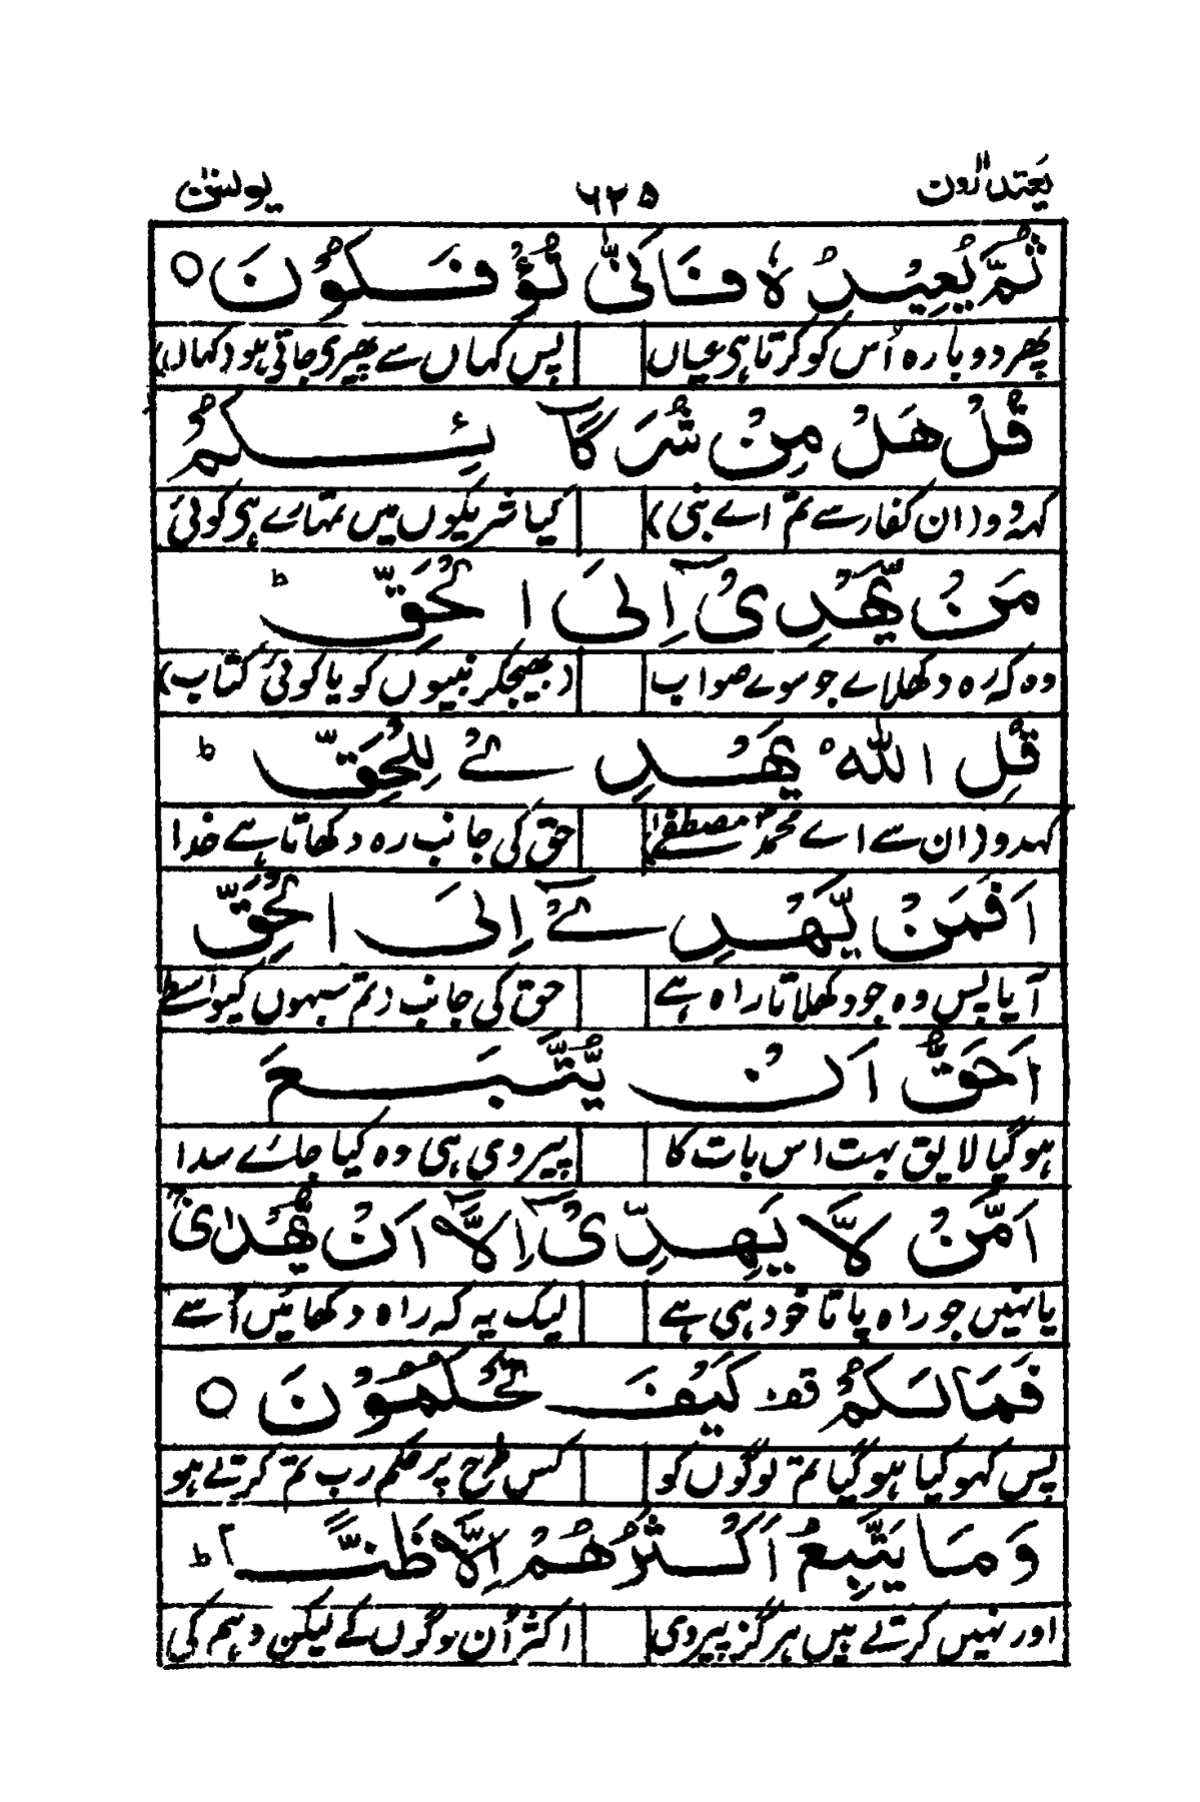 یعتذرون ۶۲۵ یونس
ثُمَّ یُعِیْدُہٗ فَاَنّٰی تُؤْفَکُوْنَ ○
پھر دوبارہ اُس کو کرتا ہی عیاں پس کہاں سے پھیری جاتی ہو (کہاں)
قُلْ ھَلْ مِنْ شُرَکَآئِکُمْ
کہہ دو (ان کفار سے تم اے نبی) کیا شریکوں میں تمہارے ہی کوئی
مَنْ یَّھْدِیْۤ اِلَی الْحَقِّ ؕ
وہ کہ رہ دکھلاے جو سوے صواب (بھیجکر نبیوں کو یا کوئی کتاب)
قُلِ اللّٰہُ یَھْدِیْ لِلْحَقِّ ؕ
کہدو (ان سے اے محمدؐ مصطفےٰ) حق کی جانب رہ دکھاتا ہے خدا
اَفَمَنْ یَّھْدِیْۤ اِلَی الْحَقِّ
آیا پس وہ جو دکھلاتا راہ ہے حق کی جانب (تم سبہوں کیواسطے
اَحَقُّ اَنْ یُّتَّبَعَ
ہو گیا لایق بہت اس بات کا پیروی ہی وہ کیا جائے سدا
اَمَّنْ لَّا یَھِدِّیْۤ اِلَّاۤ اَنْ یُّھْدٰی ۚ
یا نہیں جو راہ پاتا خود ہی ہے لیک یہ کہ راہ دکھائیں اُسے
فَمَا لَکُمْ قف کَیْفَ تَحْکُمُوْنَ ○
پس کہو کیا ہو گیا تم لوگوں کو کس طرح پر حکم رب تم کرتے ہو
وَمَا یَتَّبِعُ اَکْثَرُھُمْ اِلَّا ظَنًّا ؕ
اور نہیں کرتے ہیں ہرگز پیروی اکثر اُن لوگوں کے لیکن وہم کی